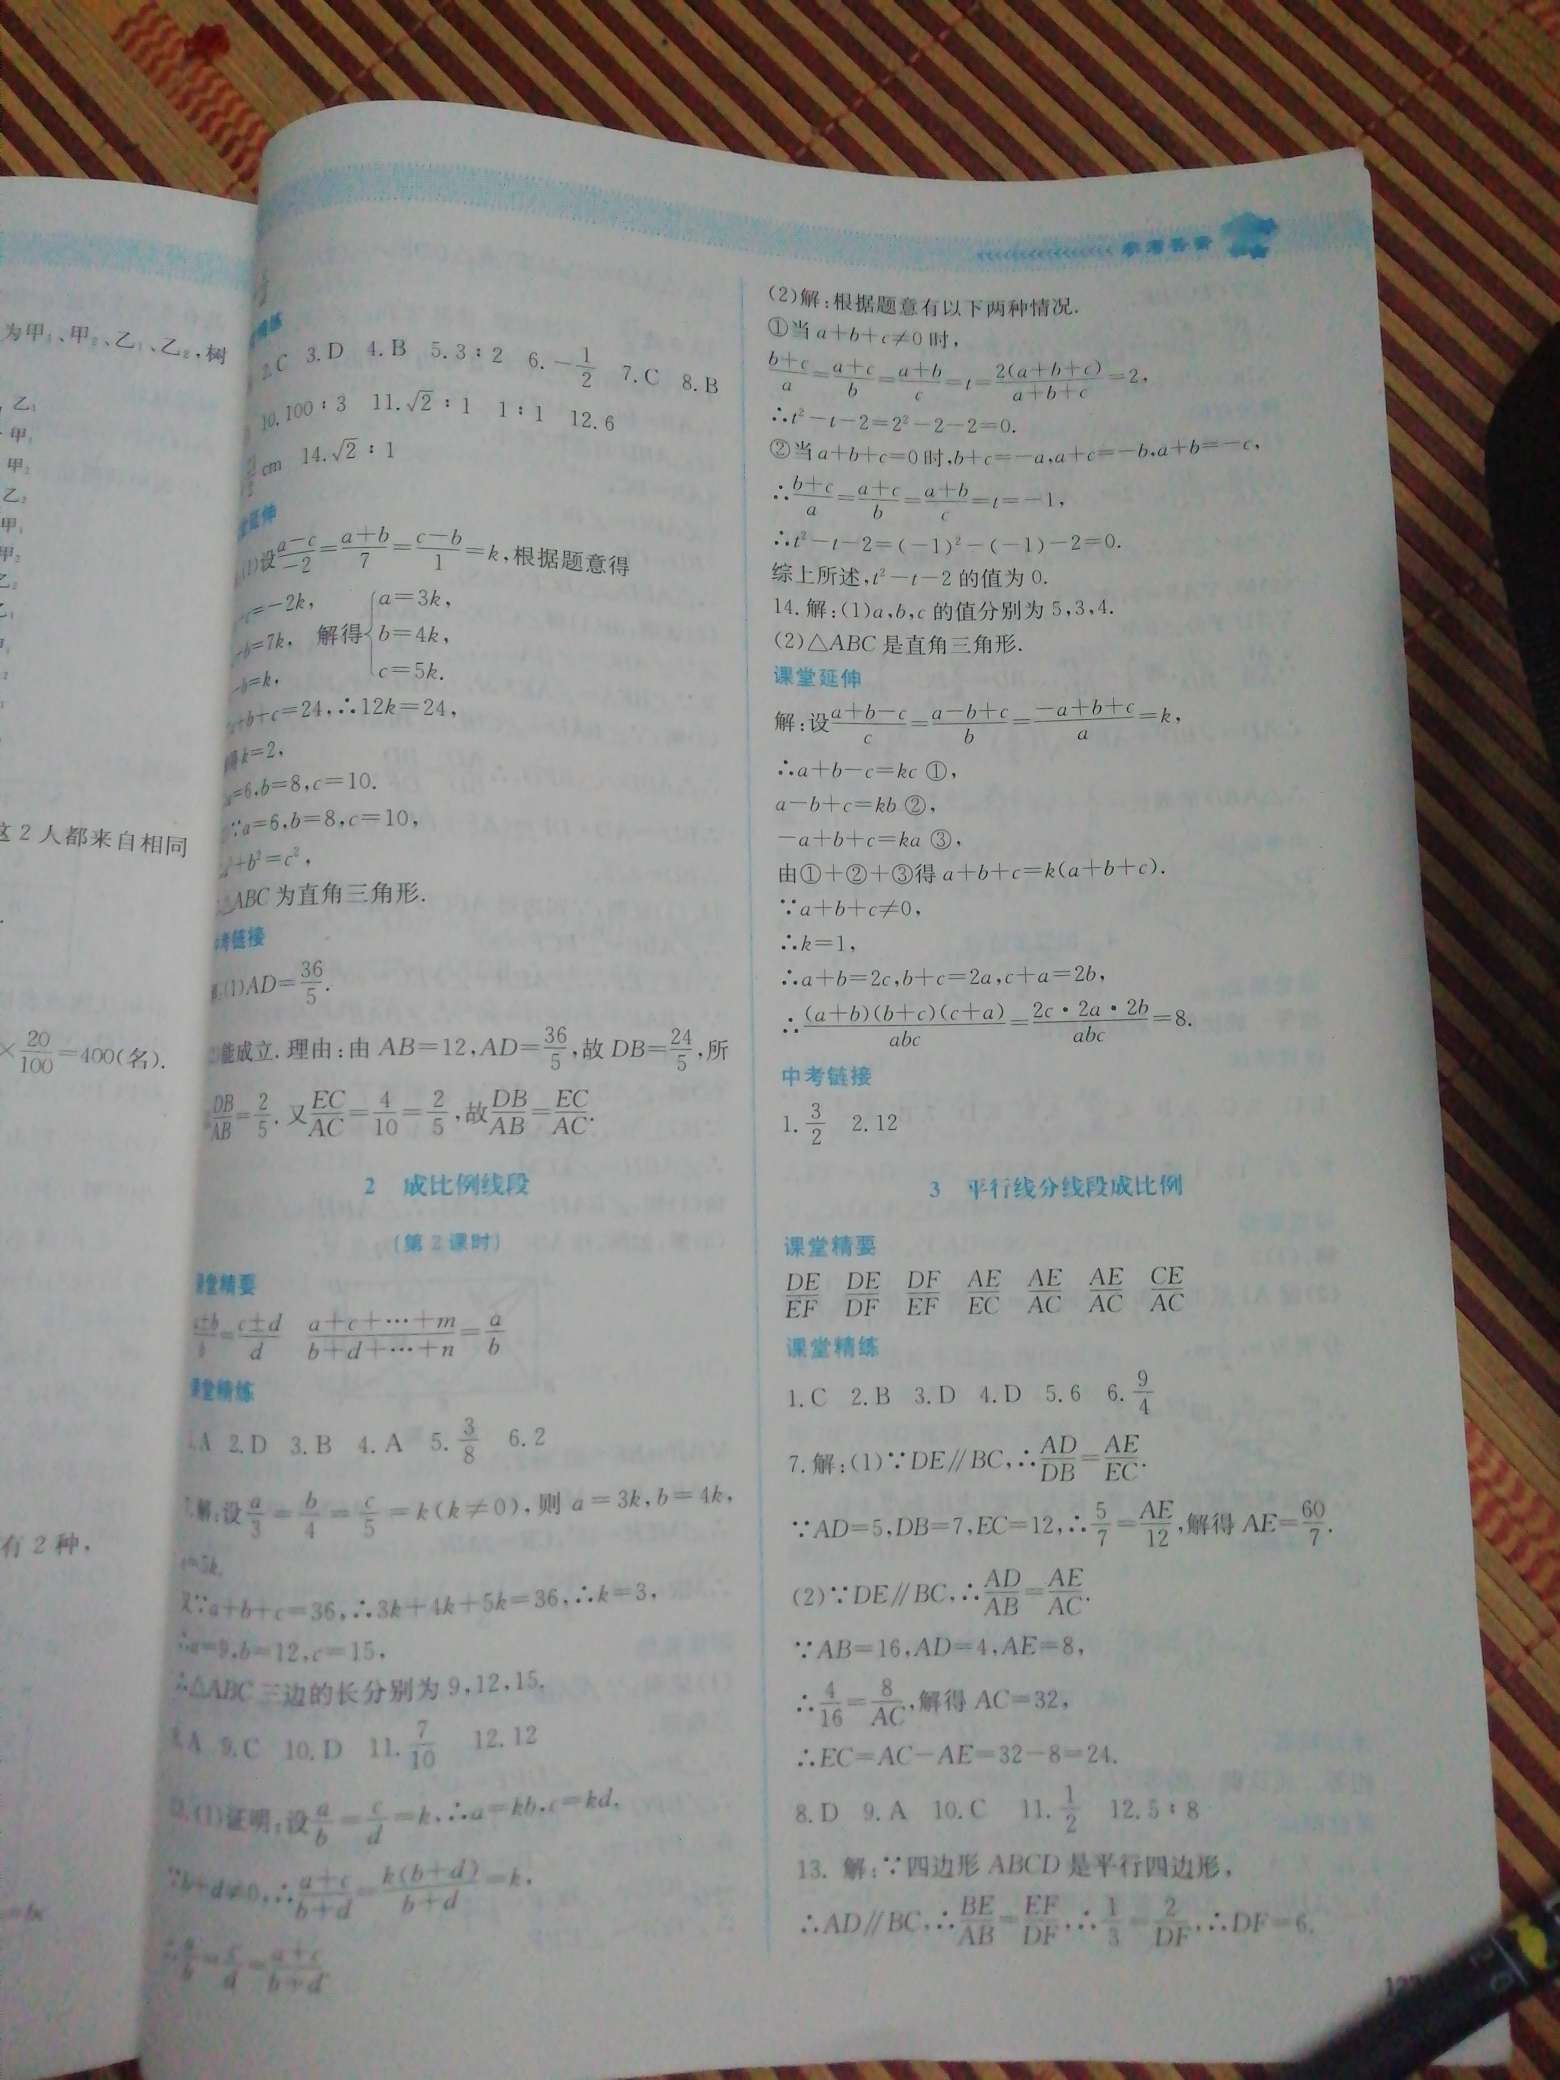 为甲₁、甲₂、乙₁、乙₂,树
乙₁
甲₁
甲₂
乙₂
甲₁
甲₂
这 2 人都来自相同
×20/100=400(名).
有 2 种,
参考答案
2.C 3.D 4.B 5.3∶2 6.-1/2 7.C 8.B
10.100∶3 11.√2∶1 1∶1 12.6
cm 14.√2∶1
延伸
(1)设(a-c)/(-2)=(a+b)/7=(c-b)/1=k,根据题意得
=-2k,
b=7k, 解得{a=3k, b=4k, c=5k.
b=k,
+b+c=24,∴12k=24,
k=2,
=6,b=8,c=10.
∵a=6,b=8,c=10,
+b²=c²,
△ABC 为直角三角形.
考链接
(1)AD=36/5.
能成立. 理由:由 AB=12,AD=36/5,故 DB=24/5,所
DB/AB=2/5. 又EC/AC=4/10=2/5,故DB/AB=EC/AC.
2 成比例线段
(第 2 课时)
课堂精要
(a±b)/b=(c±d)/d (a+c+…+m)/(b+d+…+n)=a/b
课堂精练
1.A 2.D 3.B 4.A 5.3/8 6.2
7.解:设a/3=b/4=c/5=k(k≠0),则 a=3k,b=4k,
c=5k.
又∵a+b+c=36,∴3k+4k+5k=36,∴k=3,
∴a=9,b=12,c=15,
∴△ABC 三边的长分别为 9,12,15.
8.A 9.C 10.D 11.7/10 12.12
13.(1)证明:设a/b=c/d=k,∴a=kb,c=kd.
∵b+d≠0,∴(a+c)/(b+d)=k(b+d)/(b+d)=k,
∴a/b=c/d=(a+c)/(b+d)
(2)解:根据题意有以下两种情况.
①当 a+b+c≠0 时,
(b+c)/a=(a+c)/b=(a+b)/c=t=2(a+b+c)/(a+b+c)=2,
∴t²-t-2=2²-2-2=0.
②当 a+b+c=0 时,b+c=-a,a+c=-b,a+b=-c,
∴(b+c)/a=(a+c)/b=(a+b)/c=t=-1,
∴t²-t-2=(-1)²-(-1)-2=0.
综上所述,t²-t-2 的值为 0.
14.解:(1)a,b,c 的值分别为 5,3,4.
(2)△ABC 是直角三角形.
课堂延伸
解:设(a+b-c)/c=(a-b+c)/b=(-a+b+c)/a=k,
∴a+b-c=kc ①,
a-b+c=kb ②,
-a+b+c=ka ③,
由①+②+③得 a+b+c=k(a+b+c).
∵a+b+c≠0,
∴k=1,
∴a+b=2c,b+c=2a,c+a=2b,
∴(a+b)(b+c)(c+a)/abc=2c·2a·2b/abc=8.
中考链接
1.3/2 2.12
3 平行线分线段成比例
课堂精要
DE/EF DE/DF DF/EF AE/EC AE/AC AE/AC CE/AC
课堂精练
1.C 2.B 3.D 4.D 5.6 6.9/4
7.解:(1)∵DE∥BC,∴AD/DB=AE/EC.
∵AD=5,DB=7,EC=12,∴5/7=AE/12,解得 AE=60/7.
(2)∵DE∥BC,∴AD/AB=AE/AC.
∵AB=16,AD=4,AE=8,
∴4/16=8/AC,解得 AC=32,
∴EC=AC-AE=32-8=24.
8.D 9.A 10.C 11.1/2 12.5∶8
13.解:∵四边形 ABCD 是平行四边形,
∴AD∥BC,∴BE/AB=EF/DF,∴1/3=2/DF,∴DF=6.